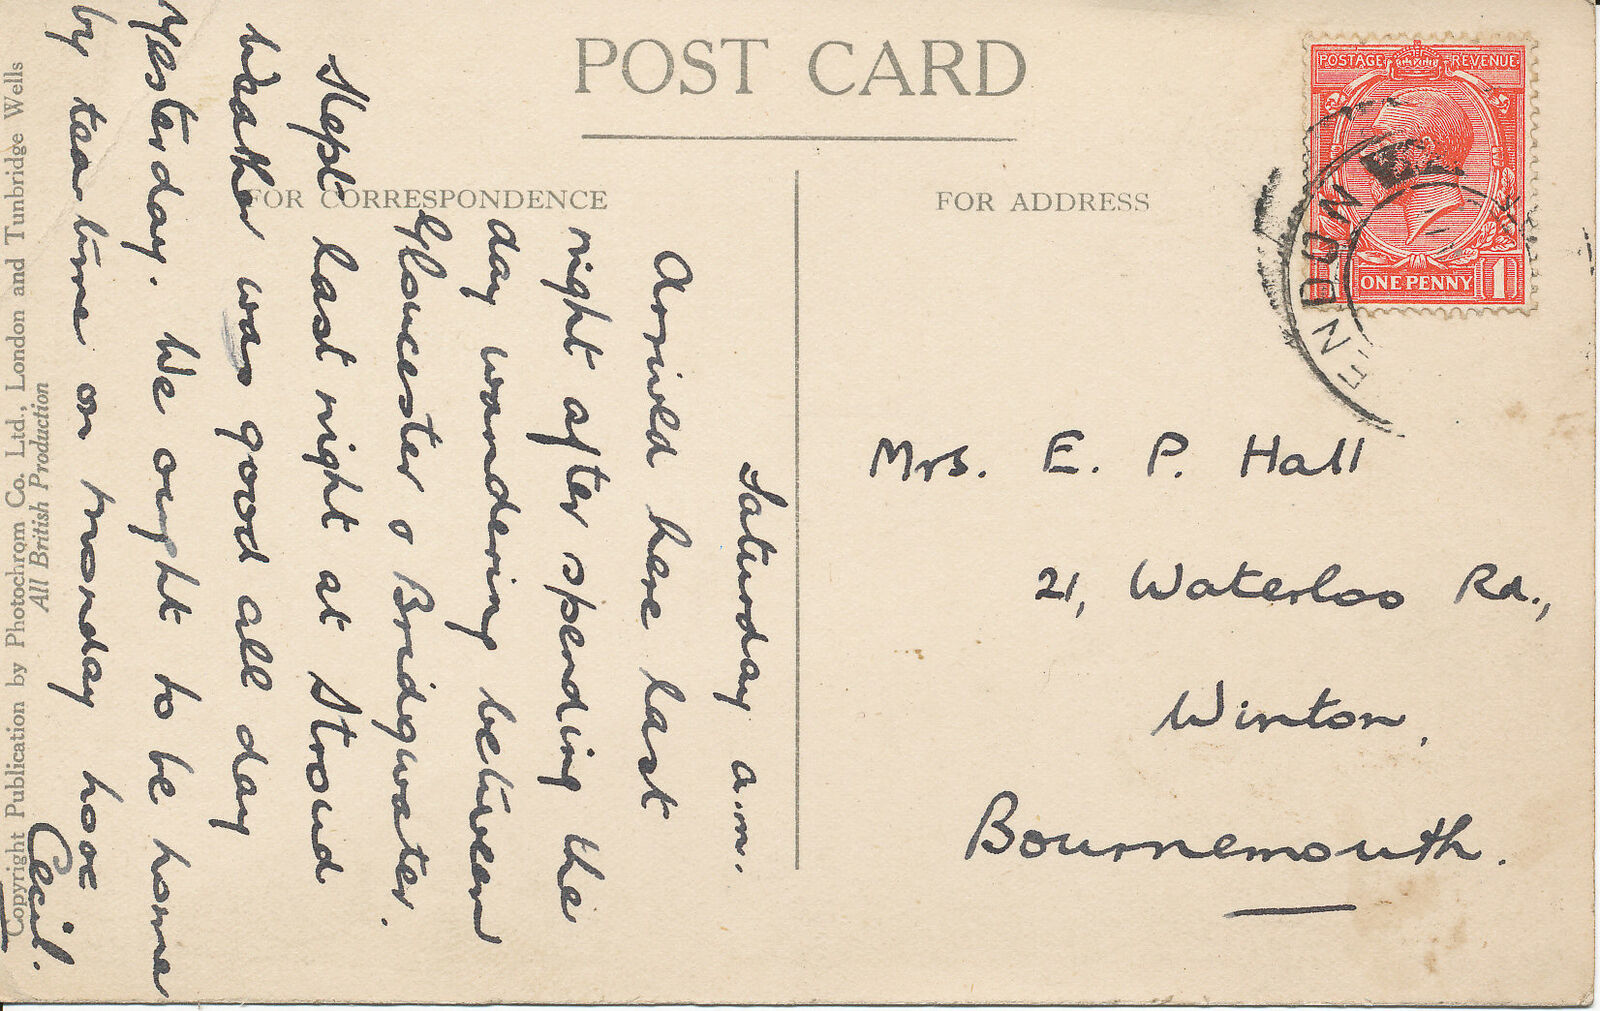 POST CARD
FOR CORRESPONDENCE
FOR ADDRESS
POSTAGE REVENUE
ONE PENNY 1
ENDUNE
Saturday a.m.
Arrived here last
night after spending the
day wandering between
Gloucester & Bridgwater.
Slept last night at Stroud
Weather was good all day
yesterday. We ought to be home
by tea time on Monday
Cecil.
Mrs. E. P. Hall
21, Waterloo Rd.,
Winton,
Bournemouth.
Copyright Publication by Photochrom Co. Ltd., London and Tunbridge Wells
All British Production